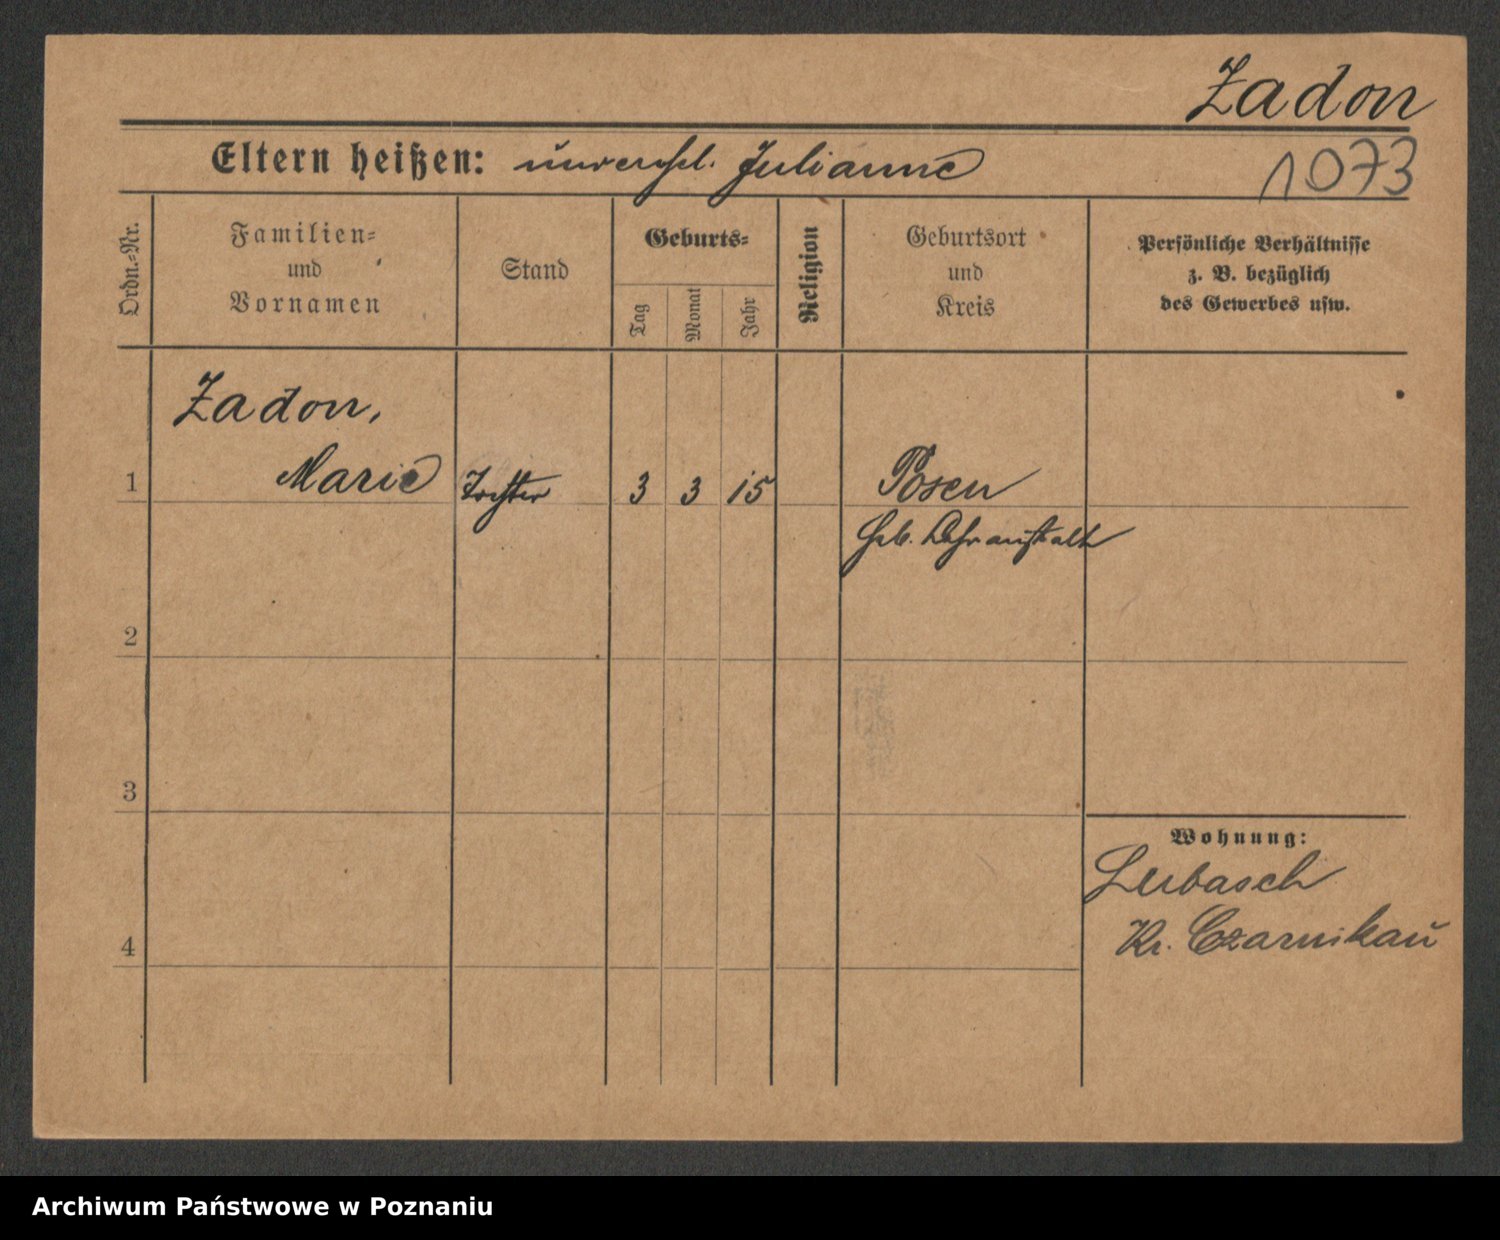 Zadon
Eltern heißen: unverehel. Julianne
1073
Ordn.-Nr.
Familien-
und
Vornamen
Stand
Geburts-
Tag
Monat
Jahr
Religion
Geburtsort
und
Kreis
Persönliche Verhältnisse
z. B. bezüglich
des Gewerbes usw.
Zadon,
1 Marie Tochter 3 3 15 Posen
Heb. Lehranstalt
2
3
Wohnung:
Lubasch
4 Kr. Czarnikau
Archiwum Państwowe w Poznaniu